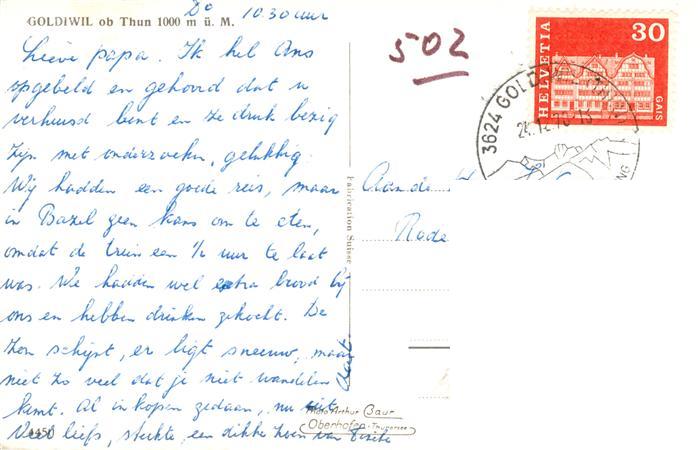 Do 10.30 uur
GOLDIWIL ob Thun 1000 m ü. M.
Lieve papa. Ik heb Ans
opgebeld en gehoord dat u
verhuisd bent en ze druk bezig
zijn met onderzoeken, gelukkig.
Wij hadden een goede reis, maar
in Bazel geen kans om te eten,
omdat de trein een 1/2 uur te laat
was. We hadden wel extra brood bij
ons en hebben drinken gekocht. De
zon schijnt, er ligt sneeuw, maar
niet zo veel dat je niet wandelen
kunt. Al inkopen gedaan, nu
Veel liefs, sterkte, een dikke zoen van
4450
Fabrication Suisse
Photo Arthur Baur
Oberhofen - Thunersee
502
HELVETIA
30
GAIS
3624 GOLDIWIL
Aan de
Rode